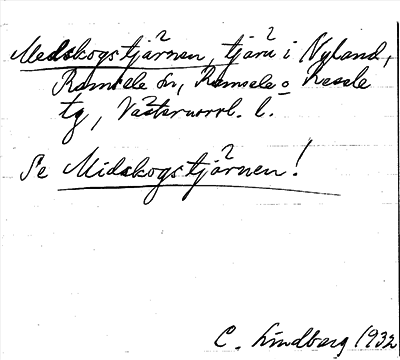 Medskogstjärnen, tjärn i Nyland,
Ramsele sn, Ramsele o Resele
tg, Västernorrl. l.
Se Midskogstjärnen!
C. Lindberg 1932